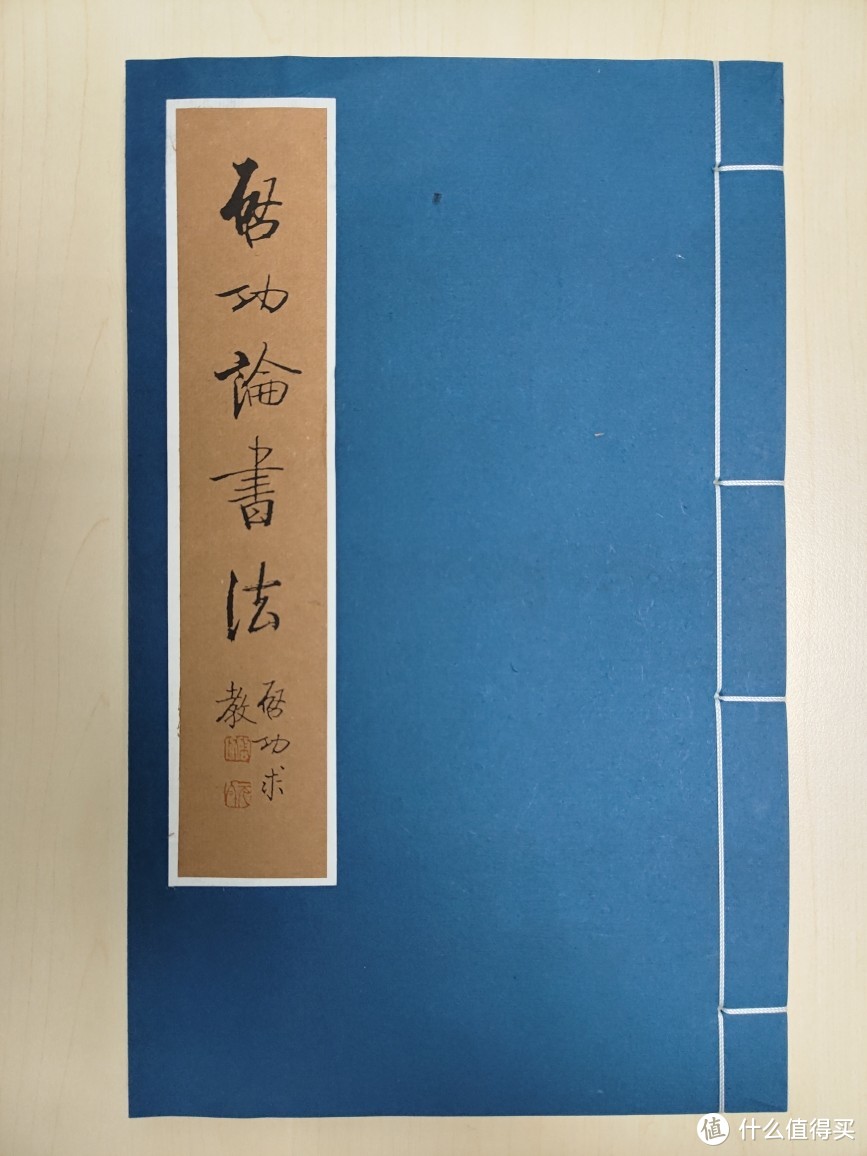 启功論書法
启功求
教
值 什么值得买